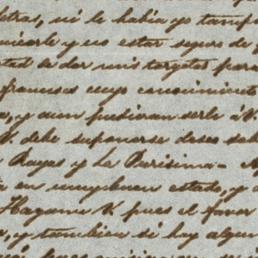 letras, ni le habia yo tampo
nicarle y no estar seguro de
tad de dar mis targetas para
franceses cuyo conocimiento
, y aun pudieran serle á V.
V. debe suponerse deseo sab
Reyes y La Purisima - A
ta en muy buen estado, y a
Hagame V. pues el favor
, y tambien si hay algun